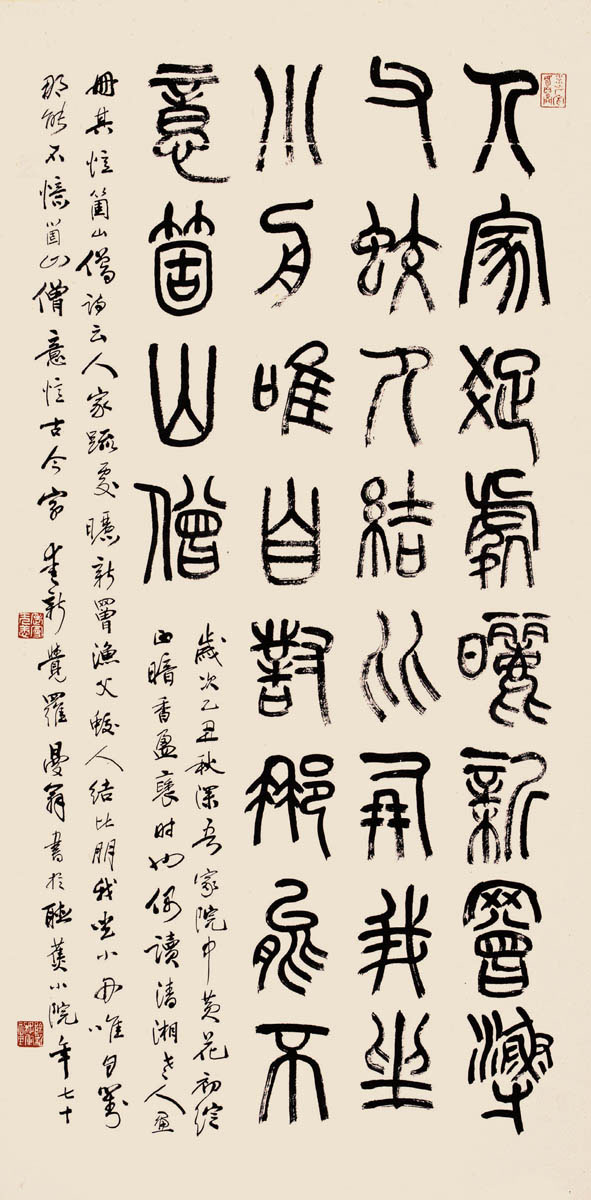 人家疏處曬新罾漁
父蛟人結比朋我坐
小舟唯自對那能不
意箇山僧
歲次乙丑秋深吾家院中黃花初綻
而暗香盈褎時也偶讀清湘老人畫
冊其憶箇山僧詩云人家踈處曬新罾漁父蛟人結比朋我坐小舟唯自對
那能不憶箇山僧意憶古今字愛新覺羅曼翁書於聽蕉小院年七十